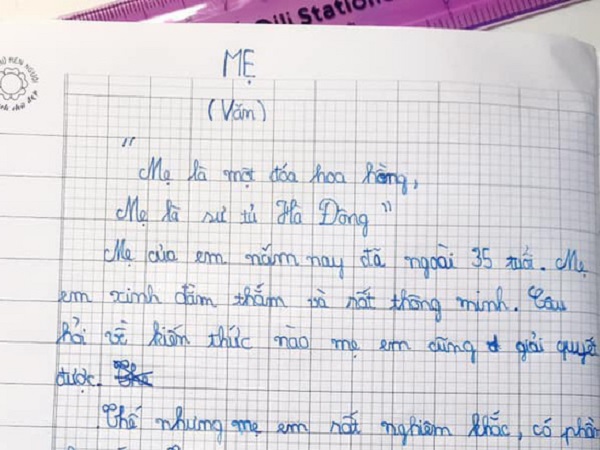 Oili Station
MẸ
(Văn)
"
Mẹ là một đóa hoa hồng,
Mẹ là sư tử Hà Đông"
Mẹ của em năm nay đã ngoài 35 tuổi. Mẹ
em xinh đằm thắm và rất thông minh. Câu
hỏi về kiến thức nào mẹ em cũng giải quyết
được.
Thế nhưng mẹ em rất nghiêm khắc, có phần